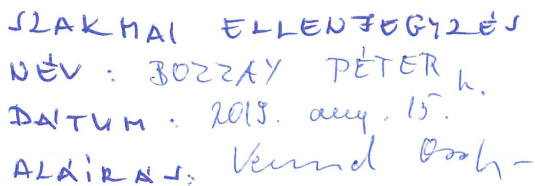 SZAKMAI ELLENJEGYZÉS
NÉV: BOZZAY PÉTER h.
DÁTUM: 2019. aug. 15.
ALÁÍRÁS: